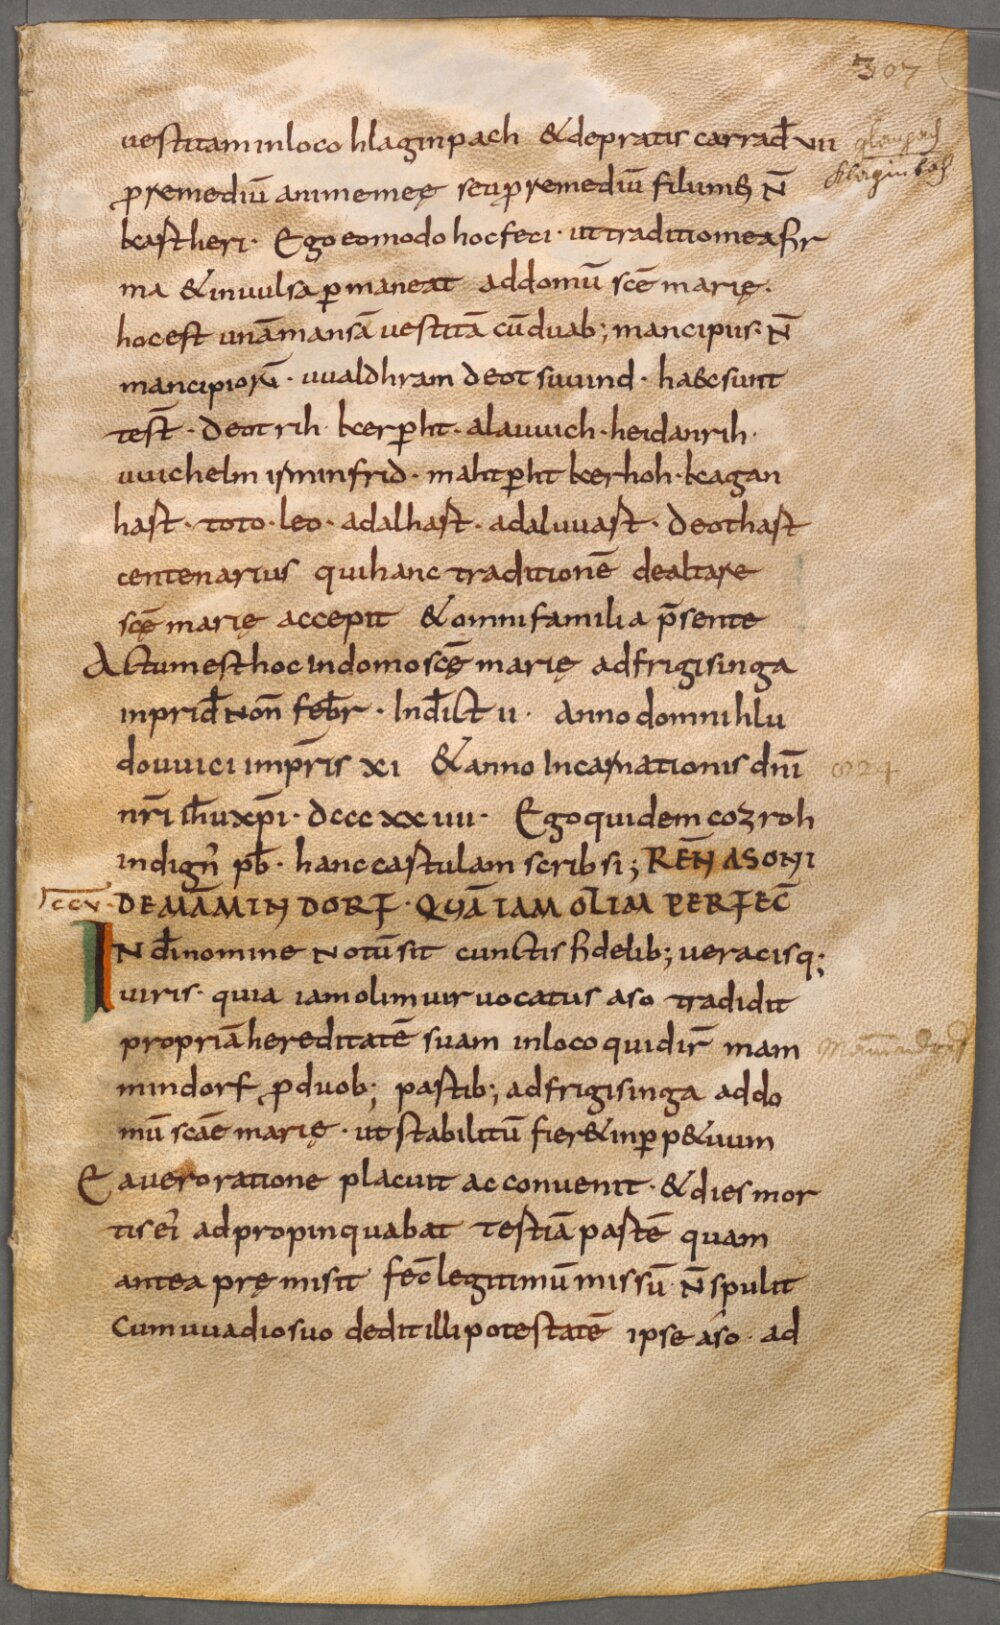 307
vestitam in loco hlaginpach & de pratis carrad̄ vii
Klaginbach
p remediū animę meę seu p remediū filii mei N̄
keastheri · Ego eo modo hoc feci · ut traditio mea fir
ma & inuulsa p maneat ad domū scē marię ·
hoc est unā mansā vestitā cū duab; mancipiis · N̄
mancipiorū · uualdhram deotsuuind · haec sunt
test̄ · deotrih · kerpht · alauuich · heidanrih ·
uuichelm isminfrid · mahtpht kerhoh · keagan
hast · toto · leo · adalhast · adaluuast · deothast
centenarius qui hanc traditionē de altare
scę̄ marię accepit & omni familia p̄sente
Actum est hoc in domo scę̄ marię ad frigisinga
in prid̄ non̄ febr̄ · Ind̄ict ii · anno domni hlu
douuici imp̄ris xi & anno Incarnationis dn̄i
824
nr̄i ih̄u xp̄i · dccc xx iiii · Ego quidem cozroh
indign' pb̄ · hanc castulam scribsi; REN̄ ASONI
CCCV · DE MĀMINDORF · QUĀ IAM OLIM PERFEC̄
IN d̄i nomine Notū sit cunctis fidelib; veracisq;
viris · quia iam olim vir vocatus aso tradidit
propriā hereditatē suam in loco qui dir̄ mam
mindorf p duob; pastib; ad frigisinga ad do
mū scāe marię · ut stabilitū fier& in p p&uum
Ea vero ratione placuit ac convenit · & dies mor
tis ei' adpropinquabat testiā pastē quam
antea pręmisit fec̄ legitimū missū N̄ spulit
cum uuadio suo dedit illi potestatē ipse aso · ad